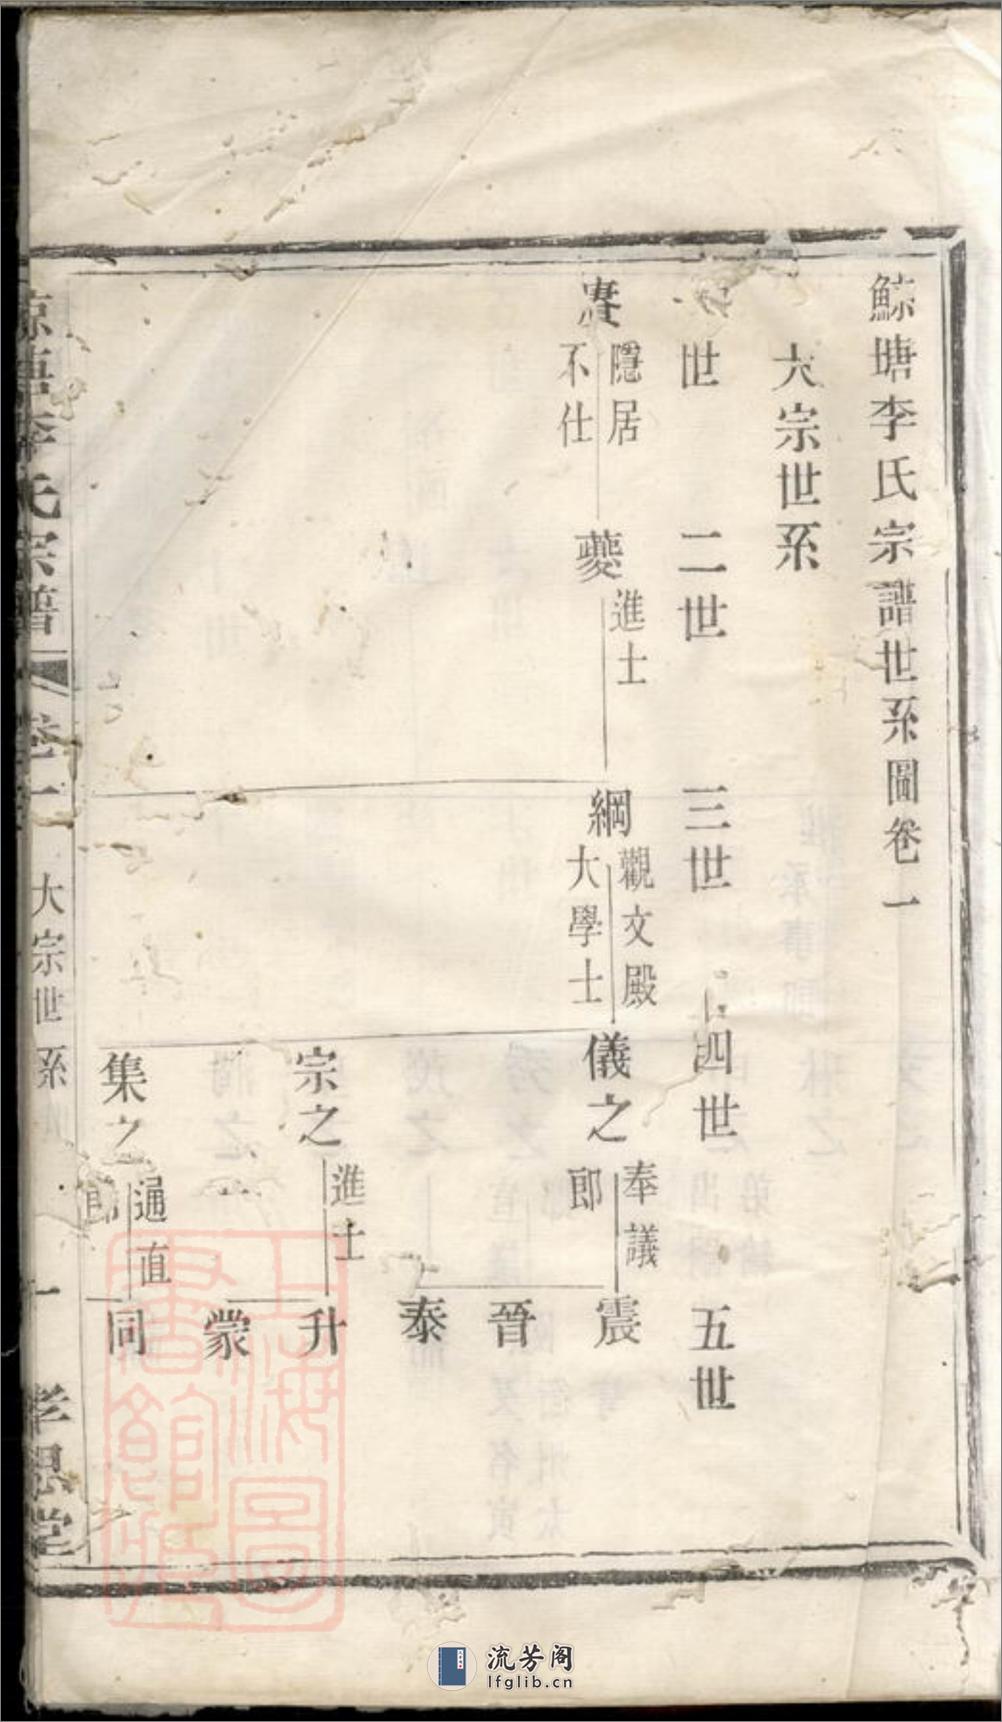 鯨塘李氏宗譜世系圖卷一
大宗世系
世
二世
三世
四世
五世
賡
隱居
不仕
夔
進士
綱
觀文殿
大學士
儀之
奉議
郎
震
晉
泰
宗之
進士
升
蒙
集之
通直
郎
同
鯨塘李氏宗譜
卷一
大宗世系
一
孝思堂
上海圖書館藏
流芳阁
lfglib.cn